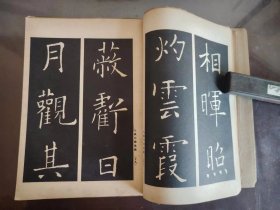 相暉照
灼雲霞
蔽虧日
月觀其